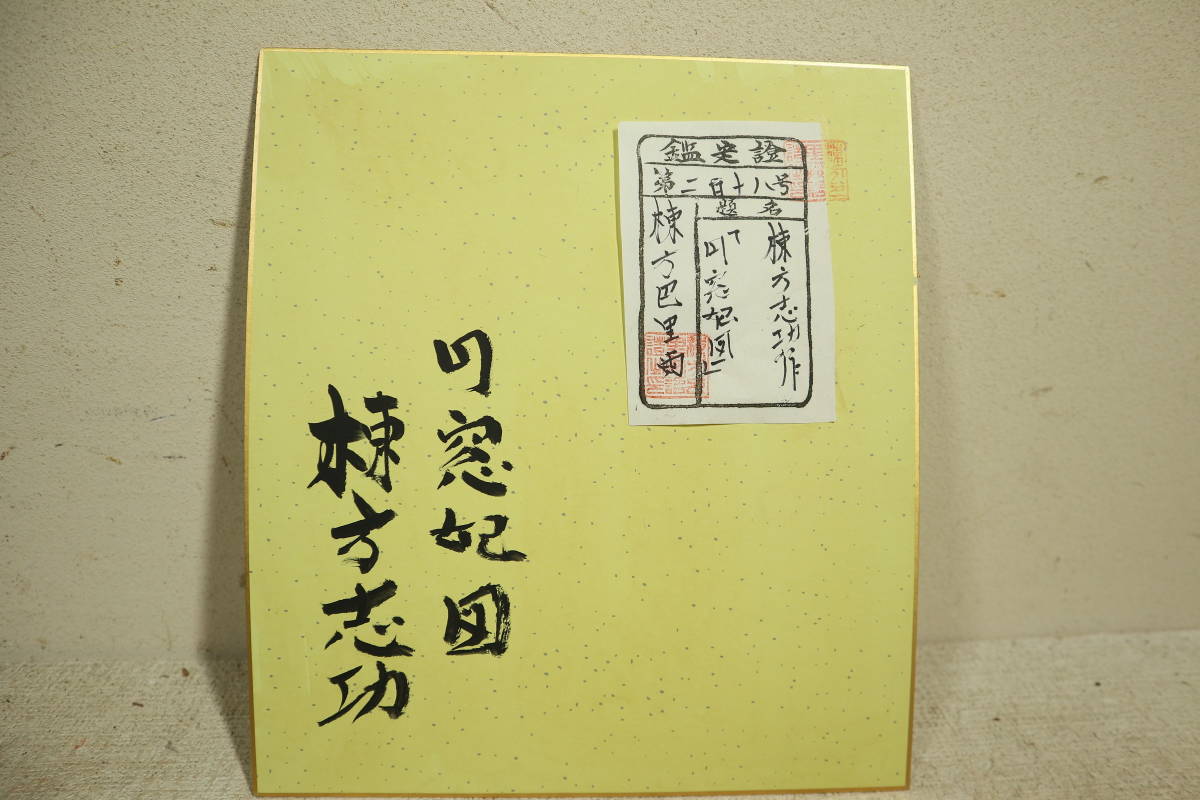 鑑定證
第二百十八号
題名
棟方志功作
「門窓妃図」
棟方巴里爾
門窓妃図
棟方志功